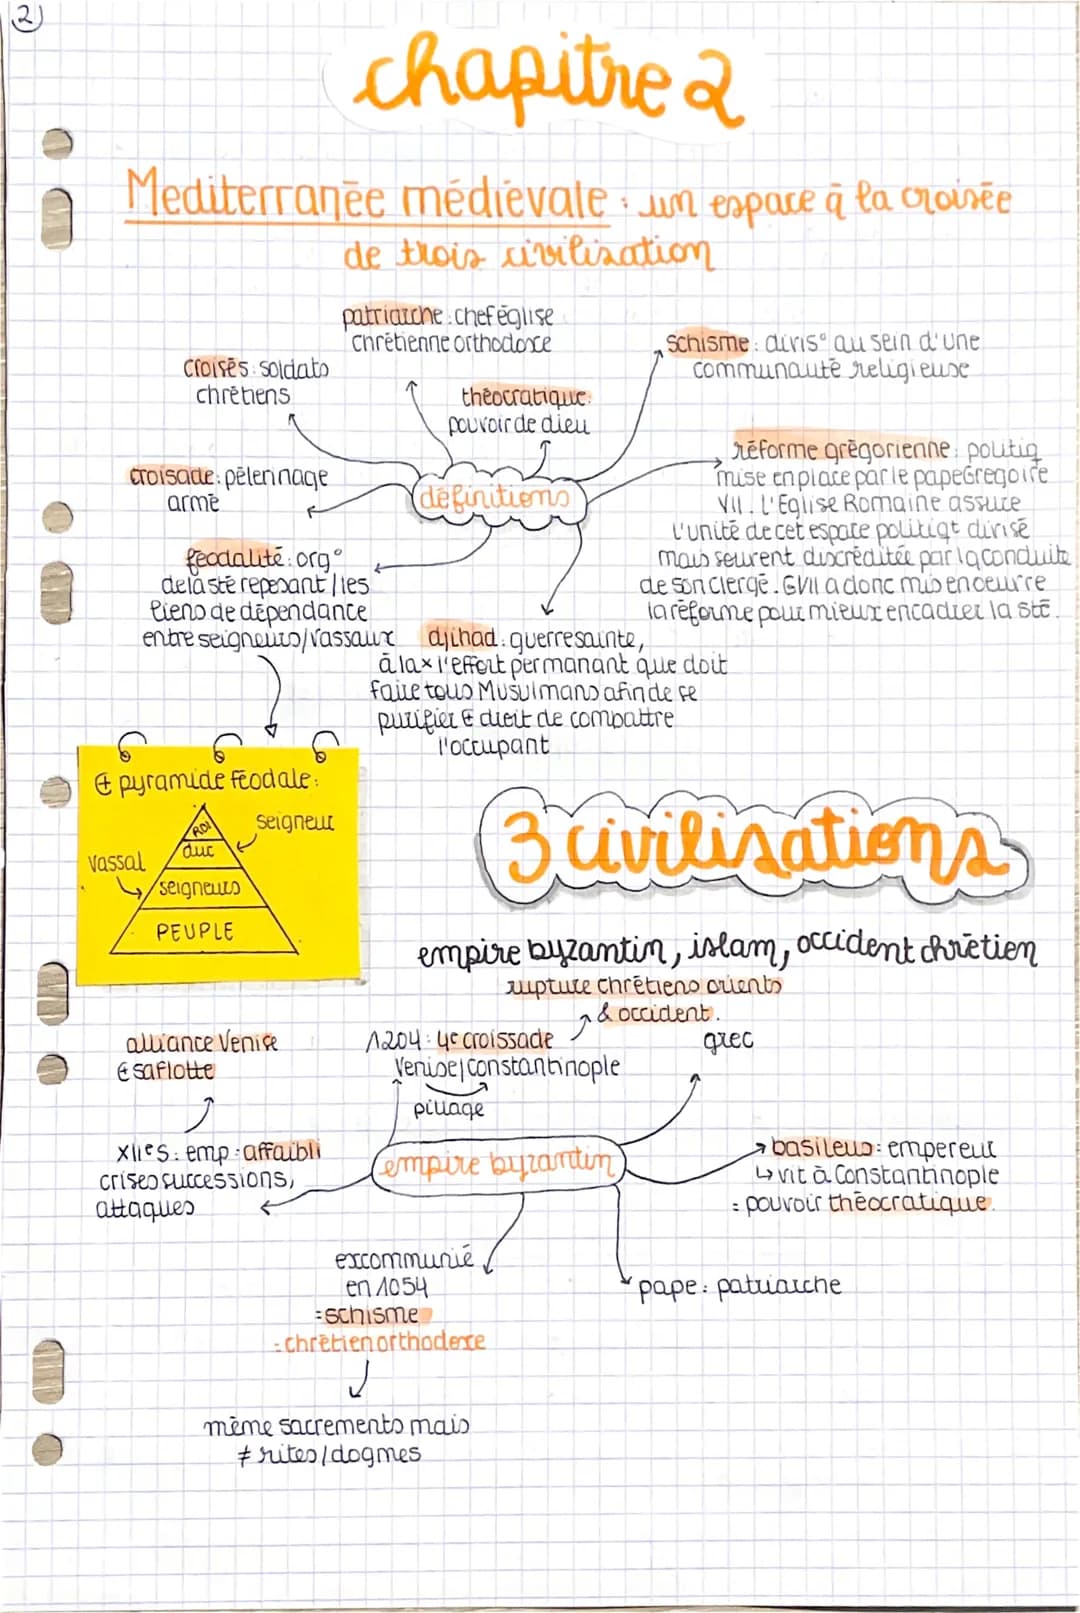 2)
chapitre 2
Mediterranée médiévale : un espace à la croisée
de trois civilisation
patriarche : chef église
chrétienne orthodoxe
schisme : divis° au sein d'une
communauté religieuse
croisés : soldats
chrétiens
théocratique :
pouvoir de dieu
réforme grégorienne : politiq
mise en place par le pape Gregoire
VII . l'Eglise Romaine assure
l'unité de cet espace politiqt divisé
mais seuvent discréditée par la conduite
de son clergé . GVII a donc mis en oeuvre
la réforme pour mieux encadrer la sté .
croisade : pélerinage
armé
définitions
féodalité : org°
de la sté reposant / les
liens de dépendance
entre seigneurs/vassaux
djihad : guerre sainte,
à la x l'effort permanant que doit
faire tous Musulmans afin de se
purifier & dreit de combattre
l'occupant
⊕ pyramide féodale :
ROI
seigneur
duc
vassal
seigneurs
PEUPLE
3 civilisations
empire byzantin, islam, occident chrétien
rupture chrétiens orients
& occident .
alliance Venise
& sa flotte
1204 : 4e croissade
Venise/constantinople
pillage
grec
XIIe s : emp : affaibli
crises successions,
attaques
empire byzantin
basileus : empereur
↳ vit à Constantinople
= pouvoir théocratique .
excommunié
en 1054
= schisme
= chrétien orthodoxe
pape : patriarche
même sacrements mais
≠ rites / dogmes